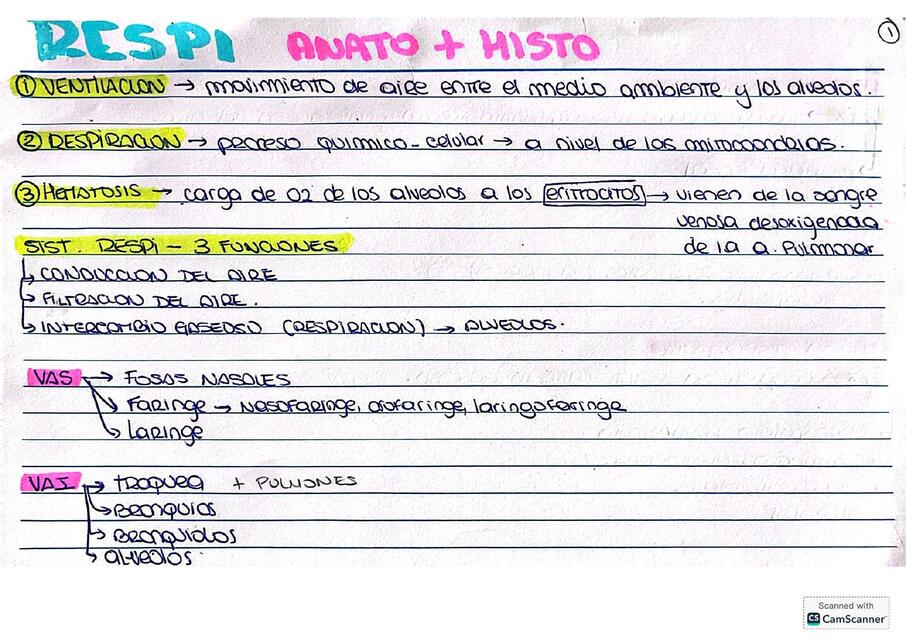 RESPI ANATO + HISTO
1
① VENTILACION → movimiento de aire entre el medio ambiente y los alveolos.
② RESPIRACION → proceso quimico-celular → a nivel de las mitocondrias.
③ HEMATOSIS → carga de O2 de los alveolos a los eritrocitos → vienen de la sangre
venosa desoxigenada
de la a. Pulmonar
SIST. RESPI - 3 FUNCIONES
↳ CONDUCCION DEL AIRE
↳ FILTRACION DEL AIRE.
↳ INTERCAMBIO GASEOSO (RESPIRACION) → ALVEOLOS.
VAS → FOSAS NASALES
↘ Faringe → Nasofaringe, orofaringe, laringofaringe
↘ Laringe
VAI → traquea + PULMONES
→ Bronquios
→ Bronquiolos
→ alveolos.
Scanned with
CS CamScanner